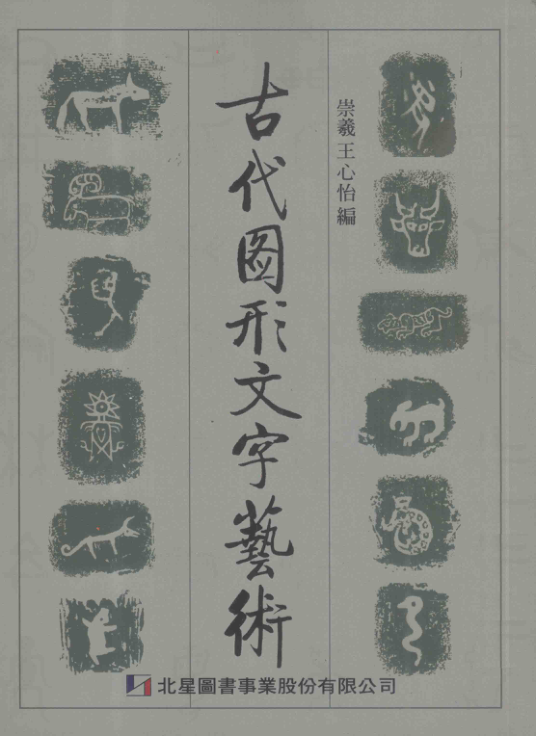 崇羲王心怡編
古代圖形文字藝術
北星圖書事業股份有限公司